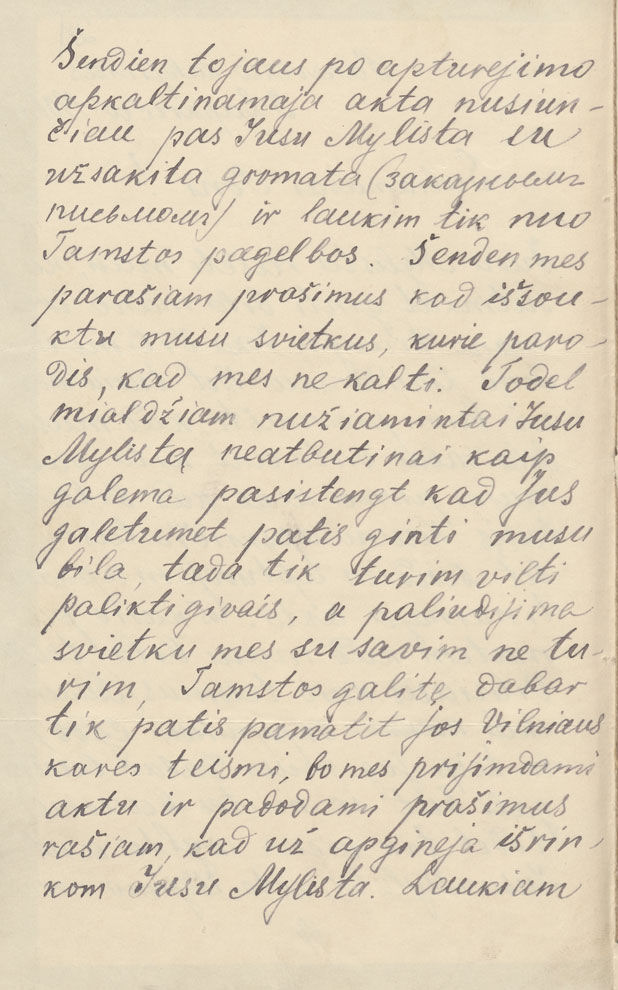 Šendien tojaus po apturejimo
apkaltinamaja akta nusiun-
čiau pas Jusu Mylista su
užsakita gromata (заказнымъ
письмомъ) ir laukim tik nuo
Tamstos pagelbos. Šenden mes
parašiam prašimus kad iššou-
ktu musu svietkus, kurie paro-
dis, kad mes ne kalti. Todel
mialdžiam nužiamintai Jusu
Mylistą neatbutinai kaip
galema pasistengt kad Jus
galetumet patis ginti musu
bila, tada tik turim vilti
palikti givais, a paliudijima
svietku mes su savim ne tu-
rim, Tamstos galitę dabar
tik patis pamatit jos Vilniaus
kares teismi, bo mes prijimdami
aktu ir padodami prašimus
rašiam, kad už apgineja išrin-
kom Jusu Mylista. Laukiam